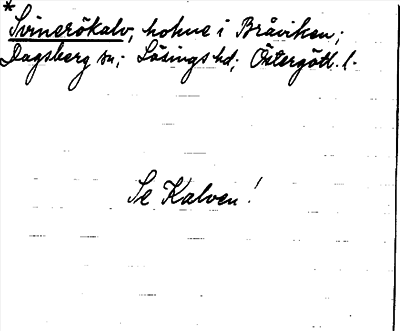 *
Svinerökalv, holme i Bråviken;
Dagsberg sn; Lösings hd; Östergötl. l.
Se Kalven!